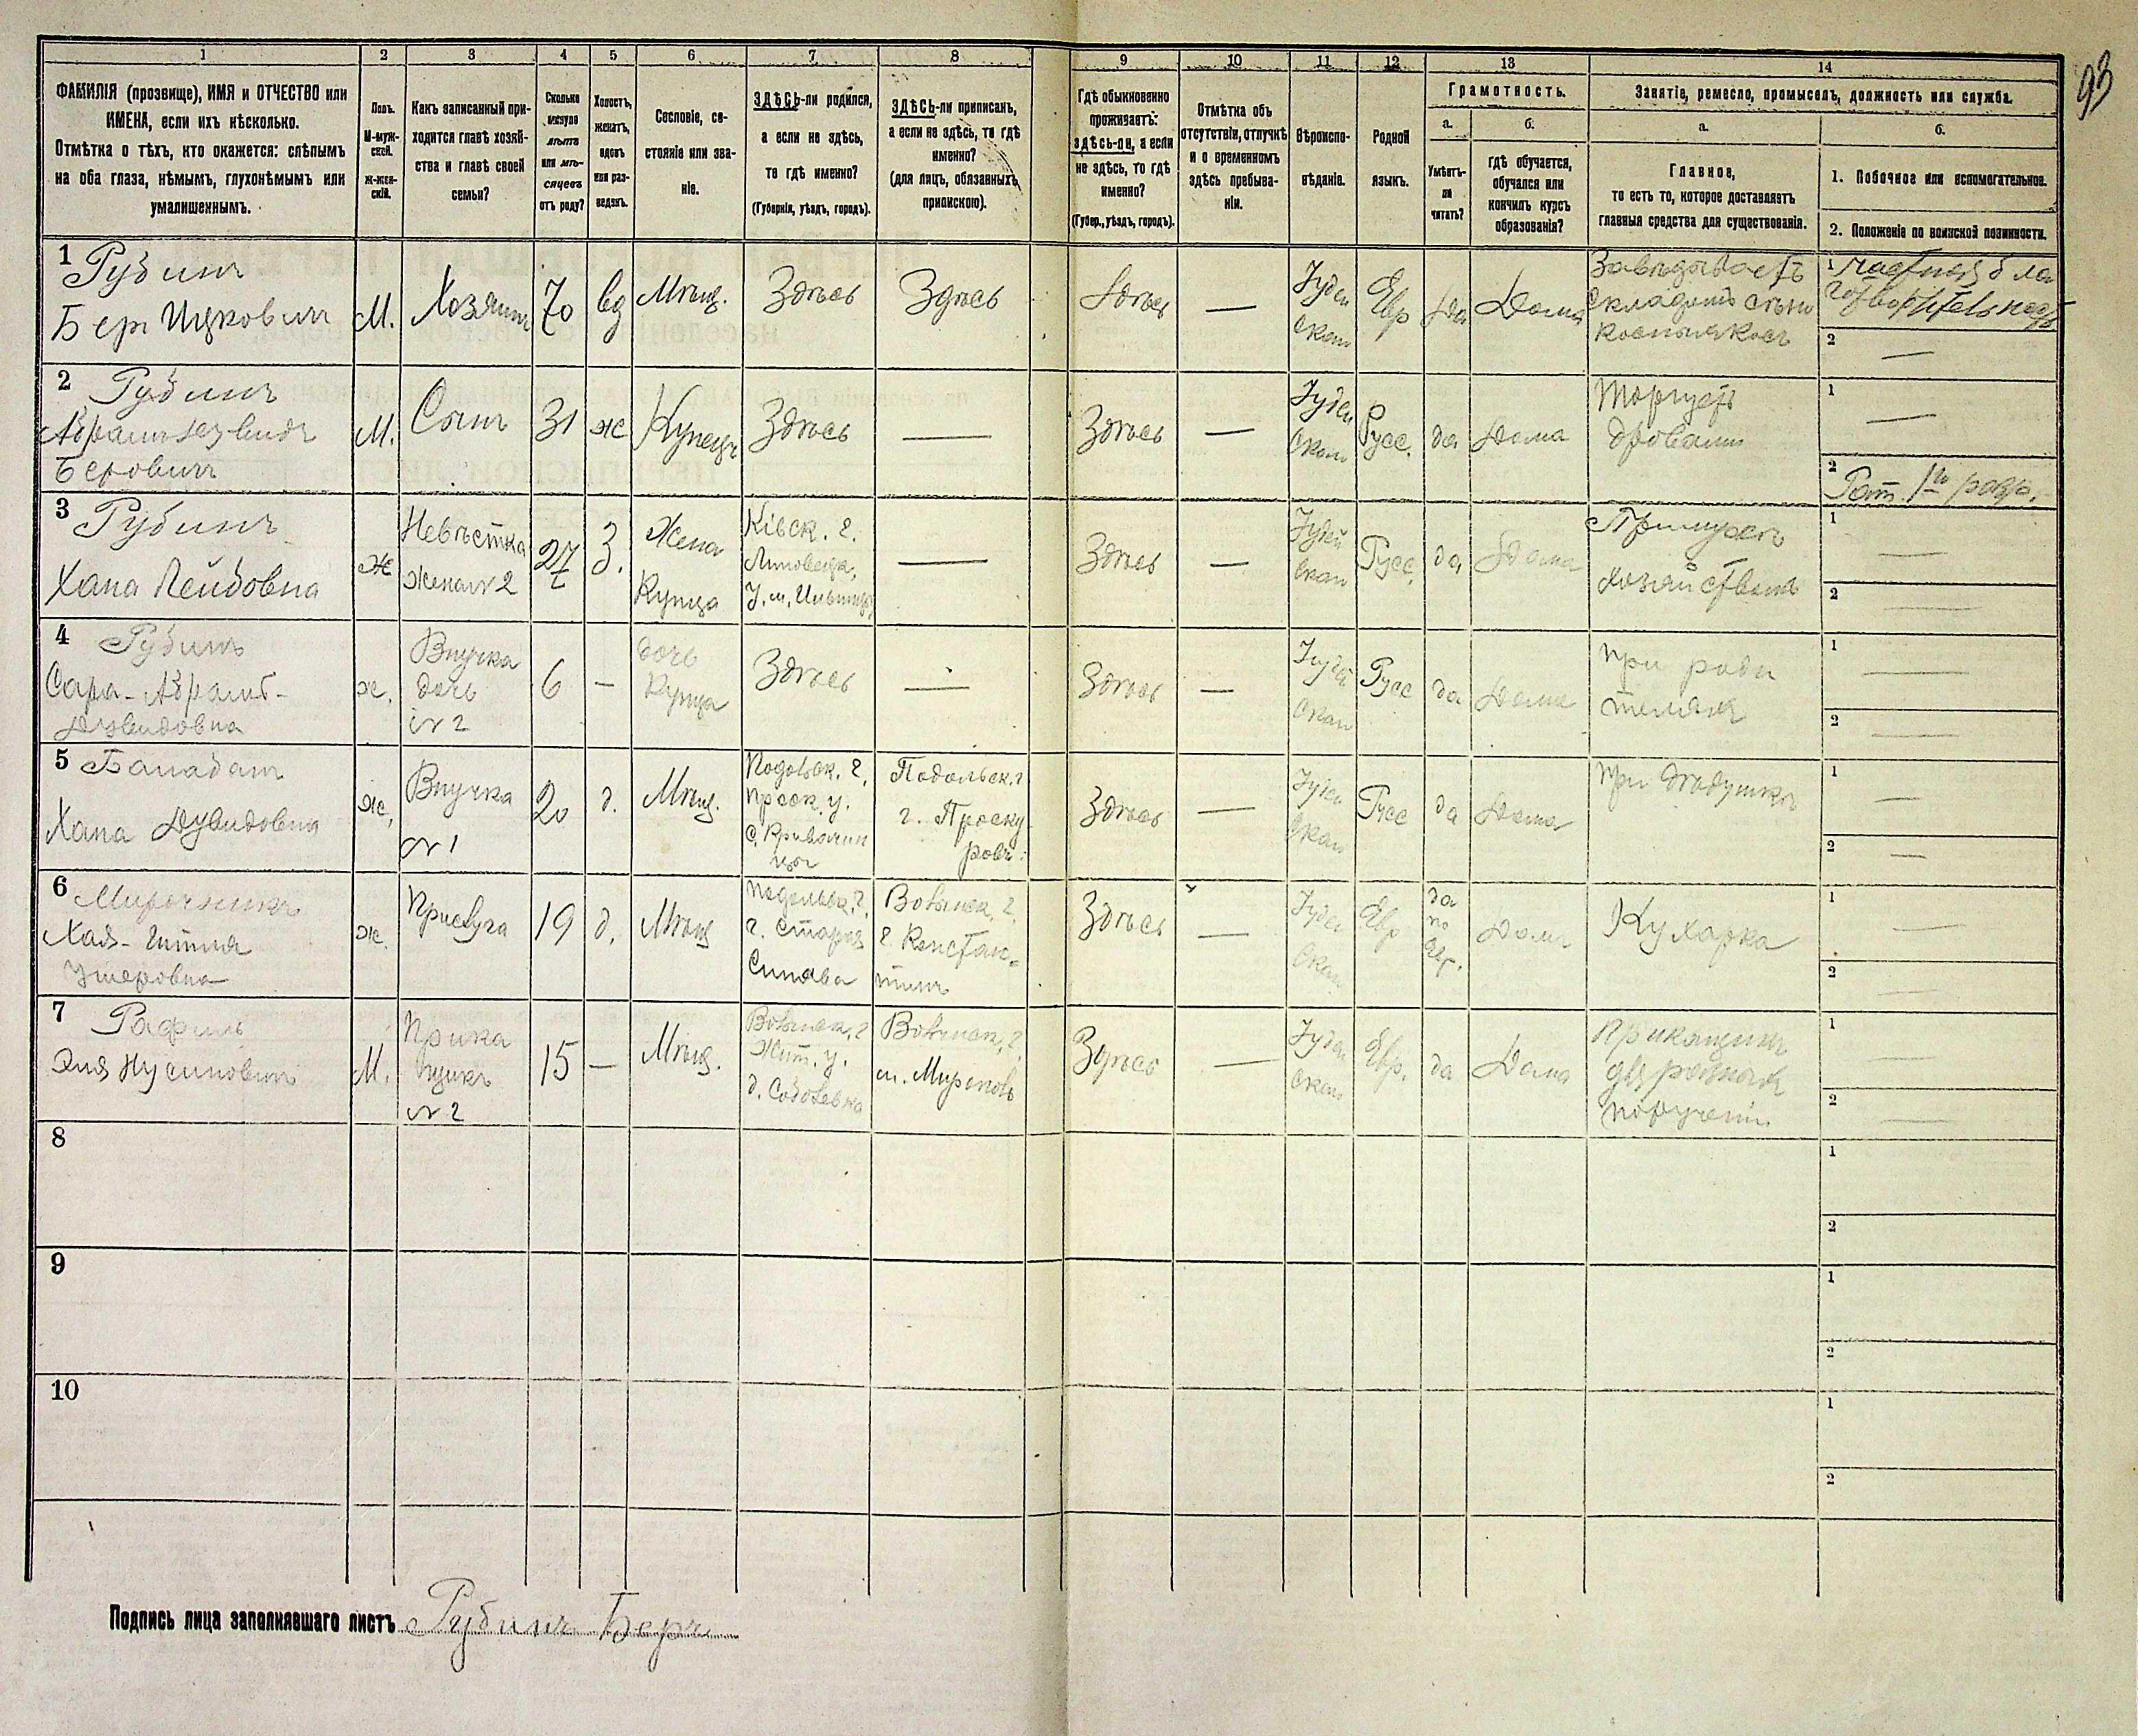 93
1 2 3 4 5 6 7 8 9 10 11 12 13 14
ФАМИЛІЯ (прозвище), ИМЯ и ОТЧЕСТВО или
ИМЕНА, если ихъ нѣсколько.
Отмѣтка о тѣхъ, кто окажется: слѣпымъ
на оба глаза, нѣмымъ, глухонѣмымъ или
умалишеннымъ.
Полъ.
М-муж-
ской.
Ж-жен-
скій.
Какъ записанный при-
ходится главѣ хозяй-
ства и главѣ своей
семьи?
Сколько
минуло
лѣтъ
или мѣ-
сяцевъ
отъ роду?
Холостъ,
женатъ,
вдовъ
или раз-
веденъ.
Сословіе, со-
стояніе или зва-
ніе.
ЗДѢСЬ-ли родился,
а если не здѣсь,
то гдѣ именно?
(Губернія, уѣздъ, городъ).
ЗДѢСЬ-ли приписанъ,
а если не здѣсь, то гдѣ
именно?
(для лицъ, обязанныхъ
припискою).
Гдѣ обыкновенно
проживаетъ:
здѣсь-ли, а если
не здѣсь, то гдѣ
именно?
(Губер., уѣздъ, городъ).
Отмѣтка объ
отсутствіи, отлучкѣ
и о временномъ
здѣсь пребыва-
ніи.
Вѣроиспо-
вѣданіе.
Родной
языкъ.
Грамотность.
а. б.
Умѣетъ-
ли
читать?
гдѣ обучается,
обучался или
кончилъ курсъ
образованія?
Занятіе, ремесло, промыселъ, должность или служба.
а. б.
Главное,
то есть то, которое доставляетъ
главныя средства для существованія.
1. Побочное или вспомогательное.
2. Положеніе по воинской повинности.
1 Рубинъ
Беръ Ицковичъ
М.
Хозяинъ
70
вд
Мѣщ.
Здѣсь
Здѣсь
Здѣсь
—
Іудей
скаго
Евр
да
Дома
Завѣдываетъ
складомъ сѣно
1 частная бла
готворительность
2 —
2 Рубинъ
Абрамъ Дувидъ
Беровичъ
М.
Сынъ
31
ж
Купецъ
Здѣсь
—
Здѣсь
—
Іудей
скаго
Русс.
да
Дома
Торгуетъ
дровами
1 —
2 Рат. 1го разр.
3 Рубинъ
Хана Лейбовна
Ж
Невѣстка
жена №2
27
З.
Жена
Купца
Кіевск. г.
Липовецк.
—
Здѣсь
—
Іудей
скаго
Русс.
да
Дома
При мужѣ
хозяйствомъ
1 —
2 —
4 Рубинъ
Сара-Абрамъ-
Дувидовна
ж.
Внучка
дочь
№ 2
6
—
дочь
Купца
Здѣсь
—
Здѣсь
—
Іудей
скаго
Русс
да
Дома
При роди
теляхъ
1 —
2 —
5
Хана Дувидовна
ж,
Внучка
№ 1
20
д.
Мѣщ.
Подольск. г.
Проск. у.
Подольск. г
г. Проску
ровъ
Здѣсь
—
Іудей
скаго
Русс
да
Дома
При дѣдушкѣ
1 —
2 —
6 Мирочникъ
Хая-Гитля
Ушеровна
ж.
Прислуга
19
д.
Мѣщ
Подольск. г.
г. Старая
Синява
Волынск. г.
г. Констан-
тинъ
Здѣсь
—
Іудей
скаго
Евр
да
по
Евр.
Дома
Кухарка
1 —
2 —
7
Эля Нусиновичъ
М.
Прика
щикъ
№ 2
15
—
Мѣщ.
Волынск. г
Жит. у.
д. Соболевка
Волынск. г.
м. Мирополь
Здѣсь
—
Іудей
скаго
Евр.
да
Дома
Прикащикъ
для разныхъ
порученій
1 —
2 —
8
1
2
9
1
2
10
1
2
Подпись лица заполнявшаго листъ Рубинъ Беръ